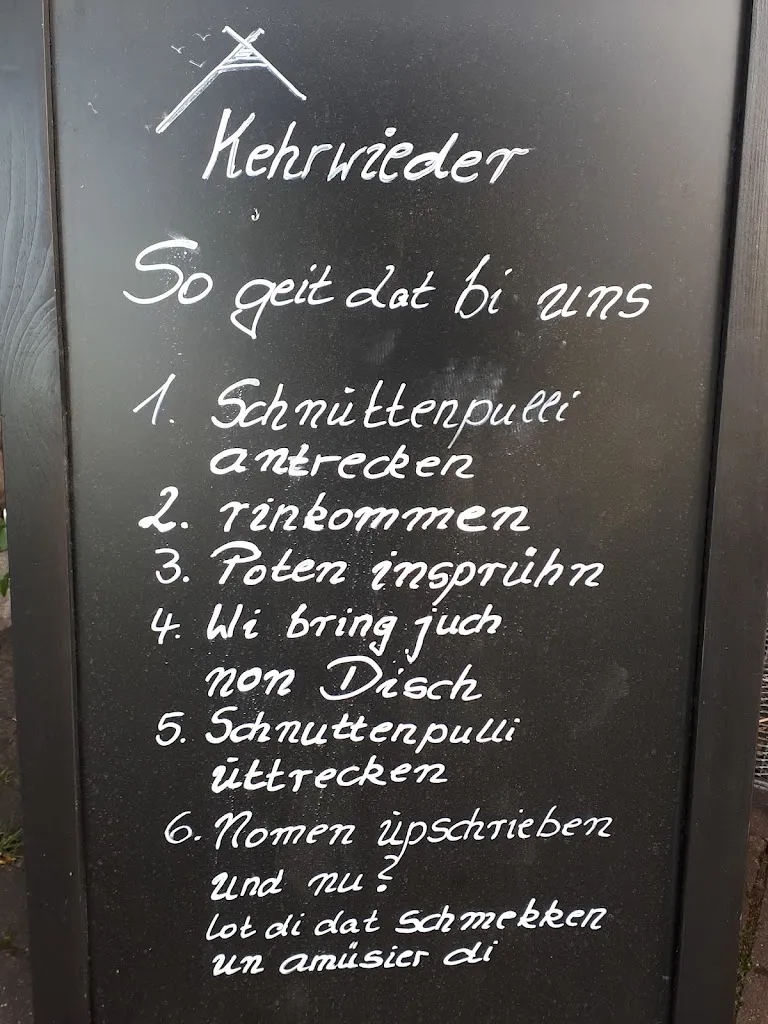 Kehrwieder
So geit dat bi uns
1. Schnüttenpulli
antrecken
2. rinkommen
3. Poten insprühn
4. Wi bring juch
non Disch
5. Schnuttenpulli
üttrecken
6. Nomen üpschrieben
und nu?
lot di dat schmekken
un amüsier di